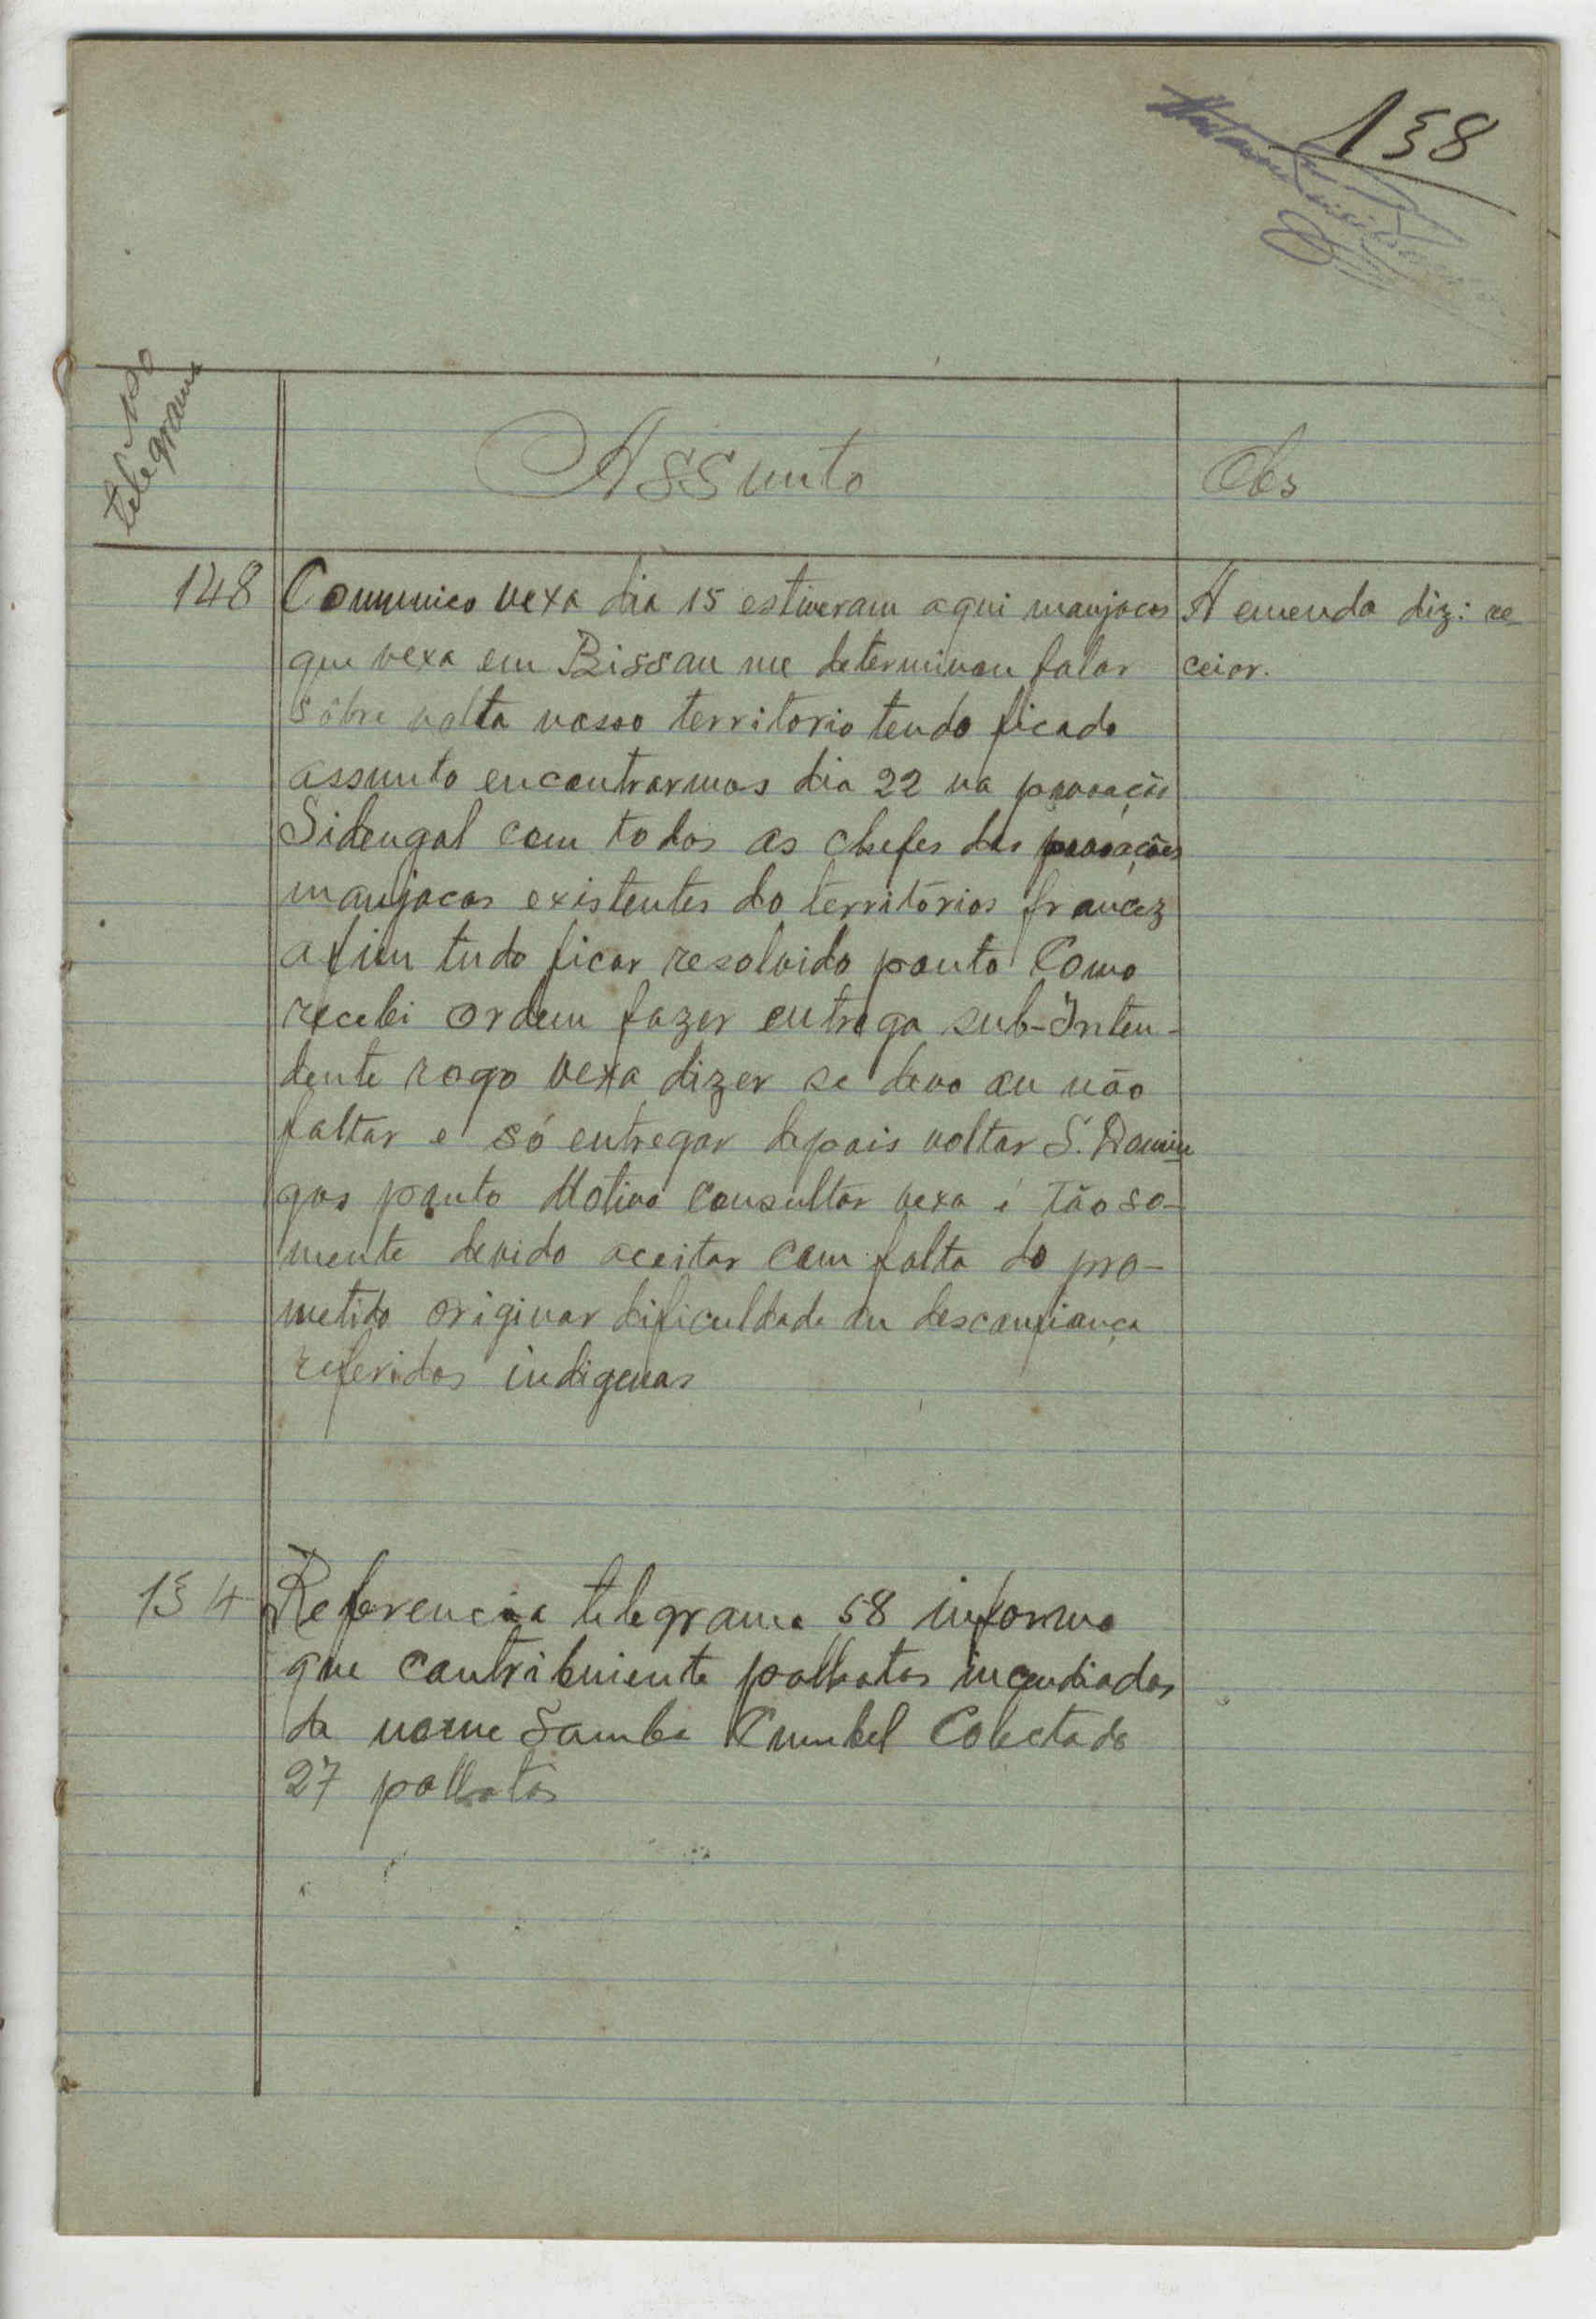 158
No telegrama
Assunto
Obs
148 Comunico vexa dia 15 estiveram aqui manjacos
que vexa em Bissau me determinou falar
sôbre volta nosso territorio tendo ficado
assunto encontrarmos dia 22 na povoação
Sidengal com todos os chefes das povoações
manjacos existentes do territórios francez
afim tudo ficar resolvido ponto Como
recebi ordem fazer entrega sub-Inten-
dente rogo vexa dizer se devo ou não
faltar e só entregar depois voltar S. Domin
gos ponto Motivo consultar vexa é tão so-
mente devido aceitar com falta do pro-
metido originar dificuldade ou desconfiança
referidos indigenas
A emenda diz: re-
ceior.
154 Referencia telegrama 58 informo
que contribuiente palhotas incendiadas
de nome Samba Cumbel Colectado
27 palhotas